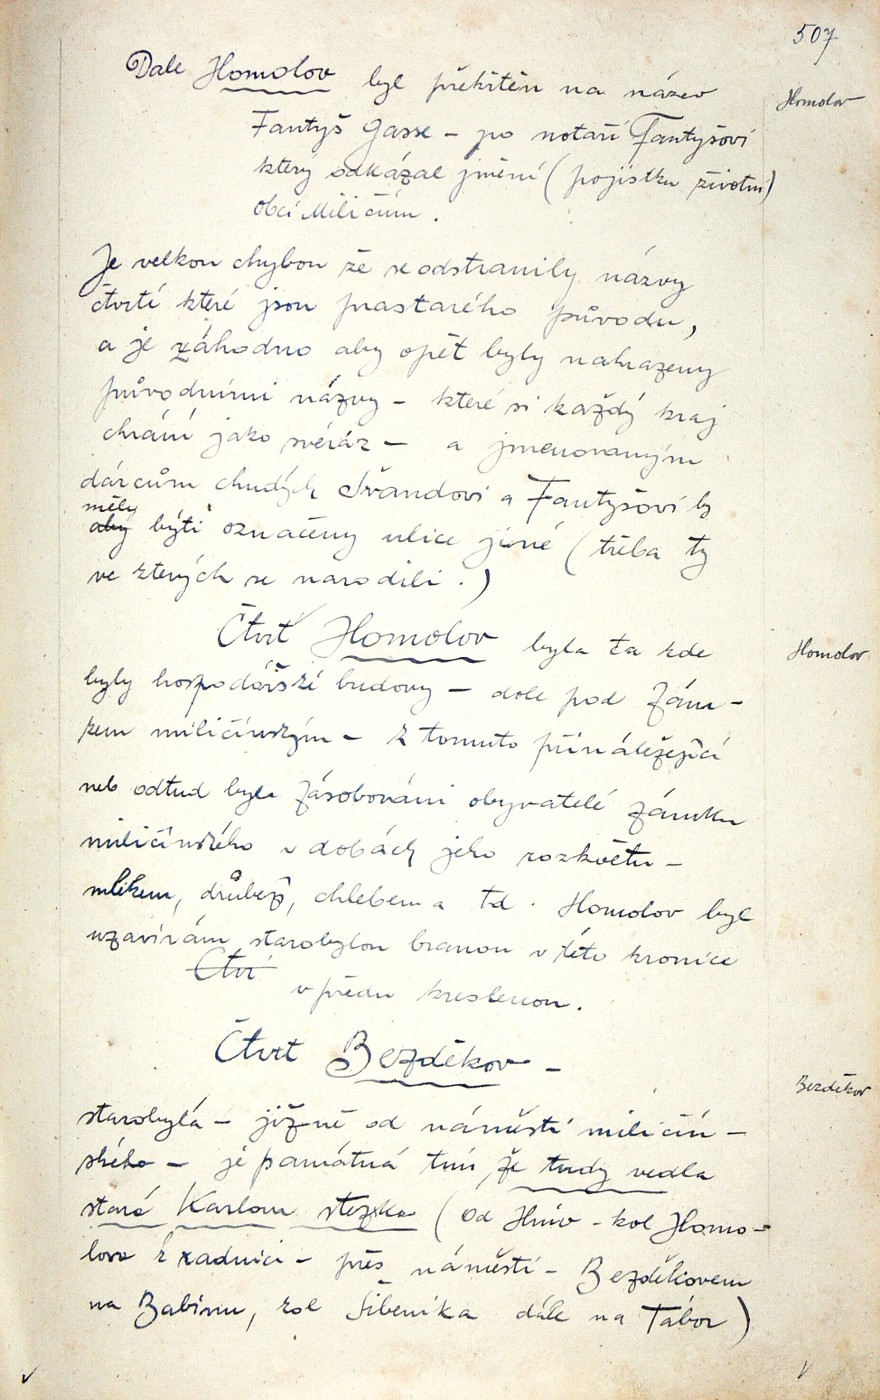 507
Dále Homolov byl překřtěn na název
Homolov
Fantyš Gasse - po notaři Fantyšovi
který odkázal jmění (pojistku životní)
obci Miličínu.
Je velkou chybou že se odstranily názvy
čtvrtí které jsou prastarého původu,
a je záhodno aby opět byly nahrazeny
původními názvy - které si každý kraj
chrání jako svéráz - a jmenovaným
dárcům chudých Švandovi a Fantyšovi by
měly
aby býti označeny ulice jiné (třeba ty
ve kterých se narodili.)
Čtvrť Homolov byla ta kde
Homolov
byly hospodářské budovy - dole pod zám-
kem miličínským - k tomuto přináležející
neb odtud byli zásobováni obyvatelé zámku
miličínského v dobách jeho rozkvětu -
mlékem, drůbeží, chlebem a td. Homolov byl
uzavírám starobylou branou v této kronice
Čtvr
v předu kreslenou.
Čtvrt Bezděkov -
Bezděkov
starobylá - jižně od náměstí miličín-
ského - je památná tím, že tudy vedla
stará Karlova stezka (od Hůrv - kol Homo-
lova k radnici - přes náměstí - Bezděkovem
na Babinu, kol Šibeníka dále na Tábor)